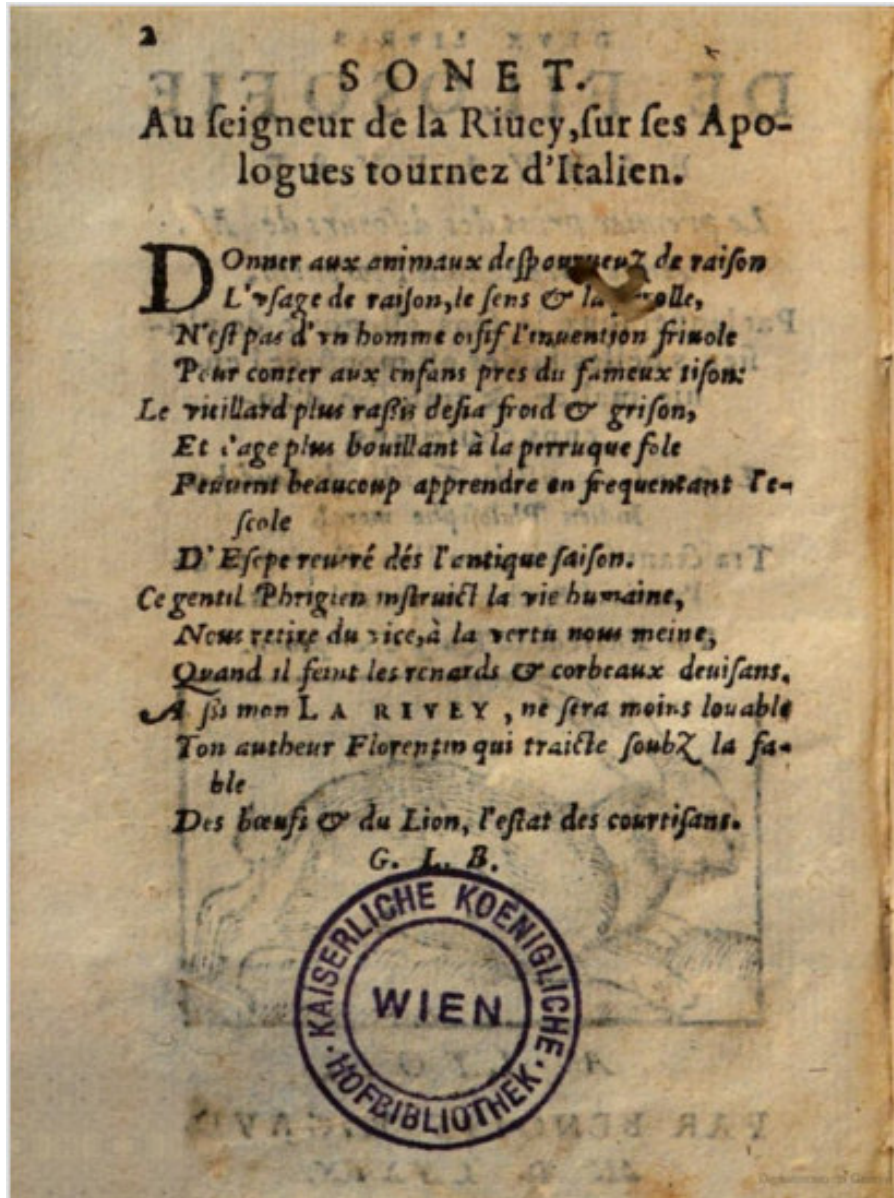 2
SONET.
Au ſeigneur de la Riuey, ſur ſes Apo-
logues tournez d'Italien.
DOnner aux animaux deſpourueuz de raiſon
L'vſage de raiſon, le ſens & la parolle,
N'eſt pas d'vn homme oiſif l'inuention friuole
Pour conter aux enfans pres du fameux tiſon:
Le vieillard plus raſſis deſia froid & griſon,
Et l'age plus bouillant à la perruque fole
Peuuent beaucoup apprendre en frequentant l'e-
ſcole
D'Eſope reueré dés l'antique ſaiſon.
Ce gentil Phrigien inſtruict la vie humaine,
Nous retire du vice, à la vertu nous meine,
Quand il feint les renards & corbeaux deuiſans.
Aſſis mon LA RIVEY, ne ſera moins louable
Ton autheur Florentin qui traicte ſoubz la fa-
ble
Des bœufs & du Lion, l'eſtat des courtiſans.
G. L. B.
KAISERLICHE KOENIGLICHE
WIEN
HOFBIBLIOTHEK